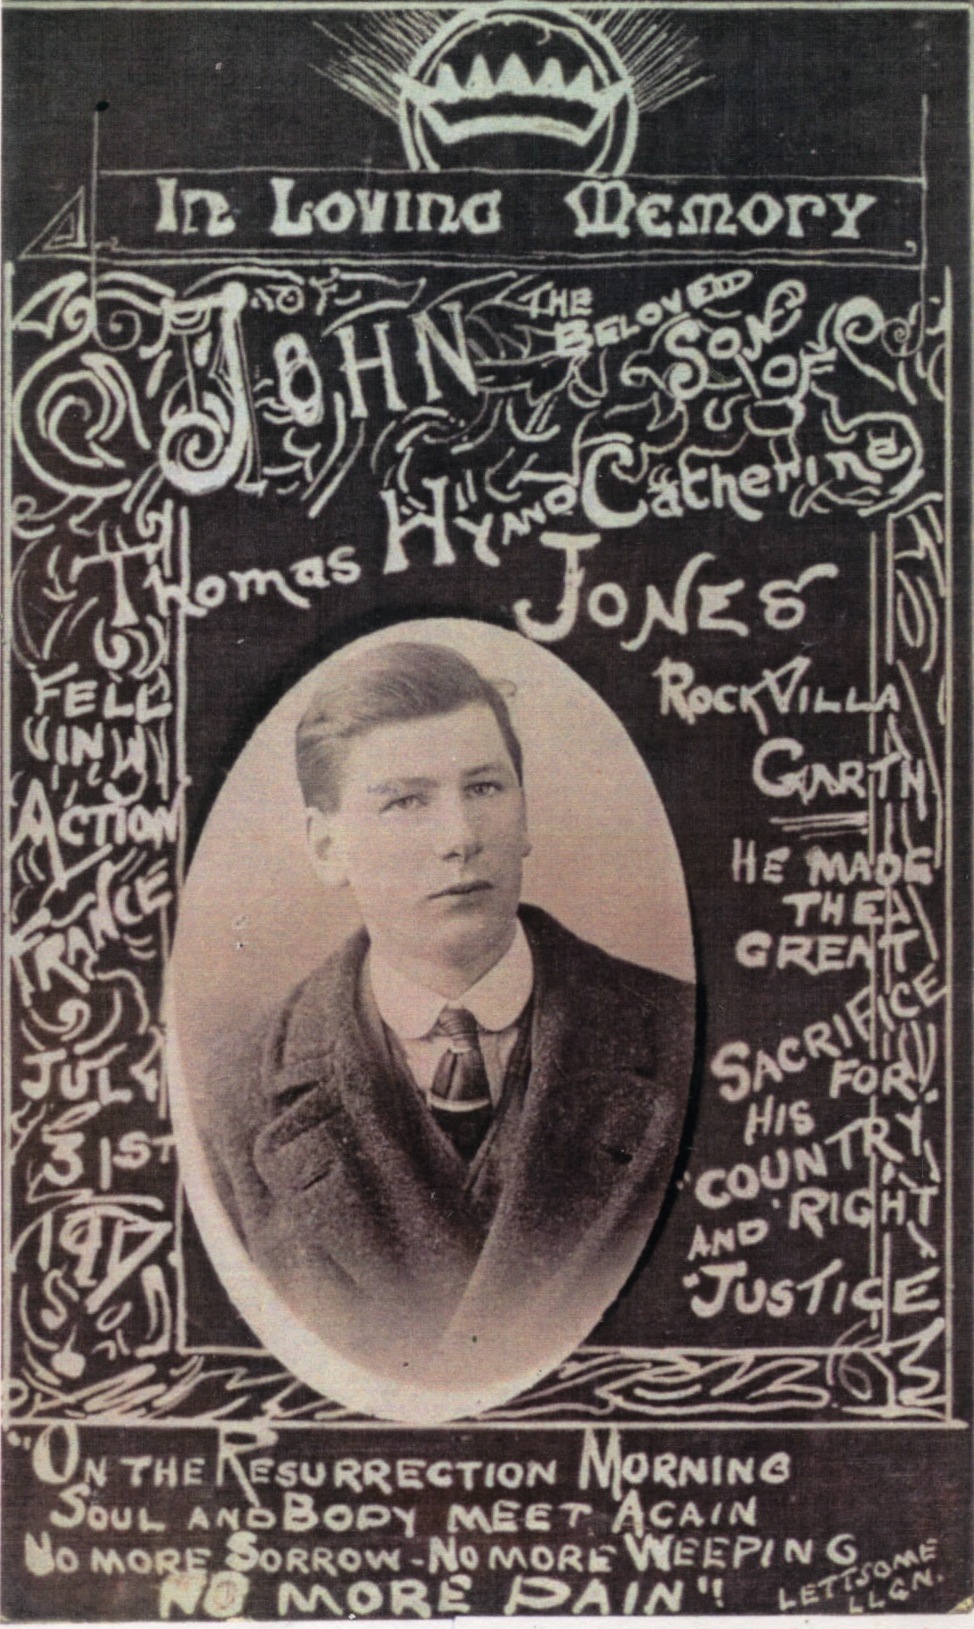 In Loving Memory
OF
JOHN THE BELOVED SON OF
Thomas Hy AND Catherine
JONES
ROCK VILLA
GARTH
FELL
IN
ACTION
FRANCE
JULY
31ST
1917
HE MADE
THE
GREAT
SACRIFICE
FOR
HIS
"COUNTRY
AND "RIGHT
"JUSTICE
"ON THE RESURRECTION MORNING
SOUL AND BODY MEET AGAIN
NO MORE SORROW - NO MORE WEEPING
NO MORE PAIN"!
LETTSOME
LLGN.